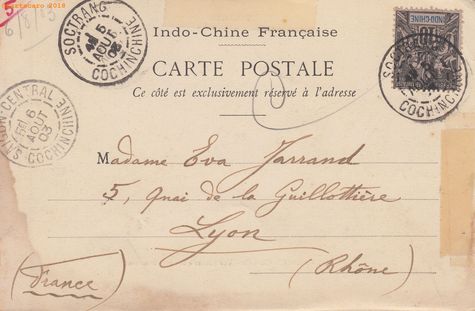 artecaro 2018
6/8/03
SOCTRANG
5
AOUT
03
COCHINCHINE
Indo-Chine Française
INDO-CHINE
SOCTRANG
COCHINCHINE
CARTE POSTALE
Ce côté est exclusivement réservé à l'adresse
SAIGON CENTRAL
6
AOUT
03
COCHINCHINE
Madame Eva Jarrand
5, Quai de la Guillottière
Lyon
(Rhône)
(France)